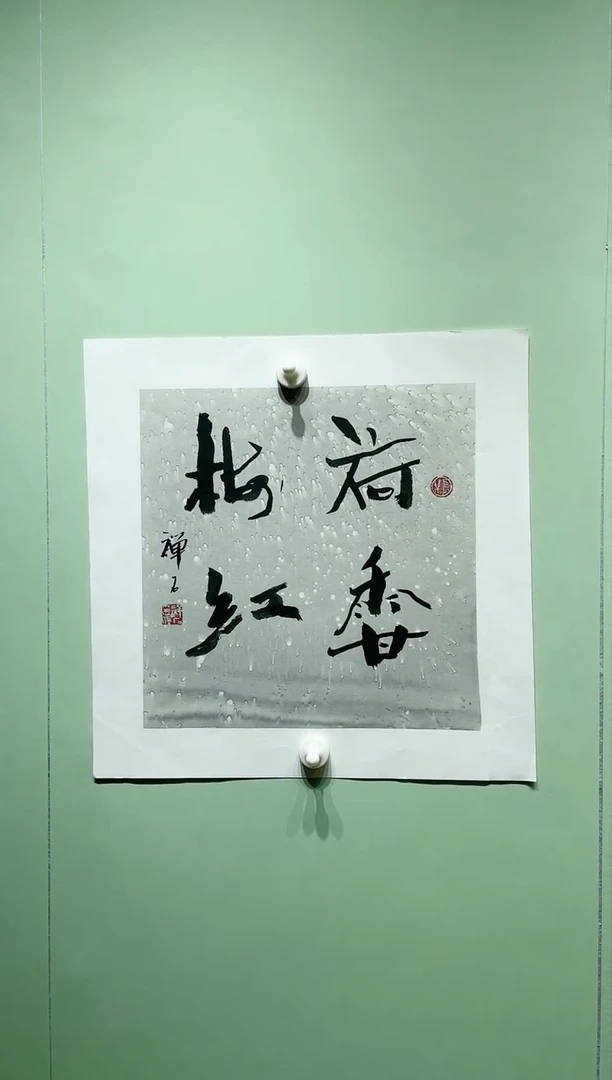 荷香
梅红
禅石